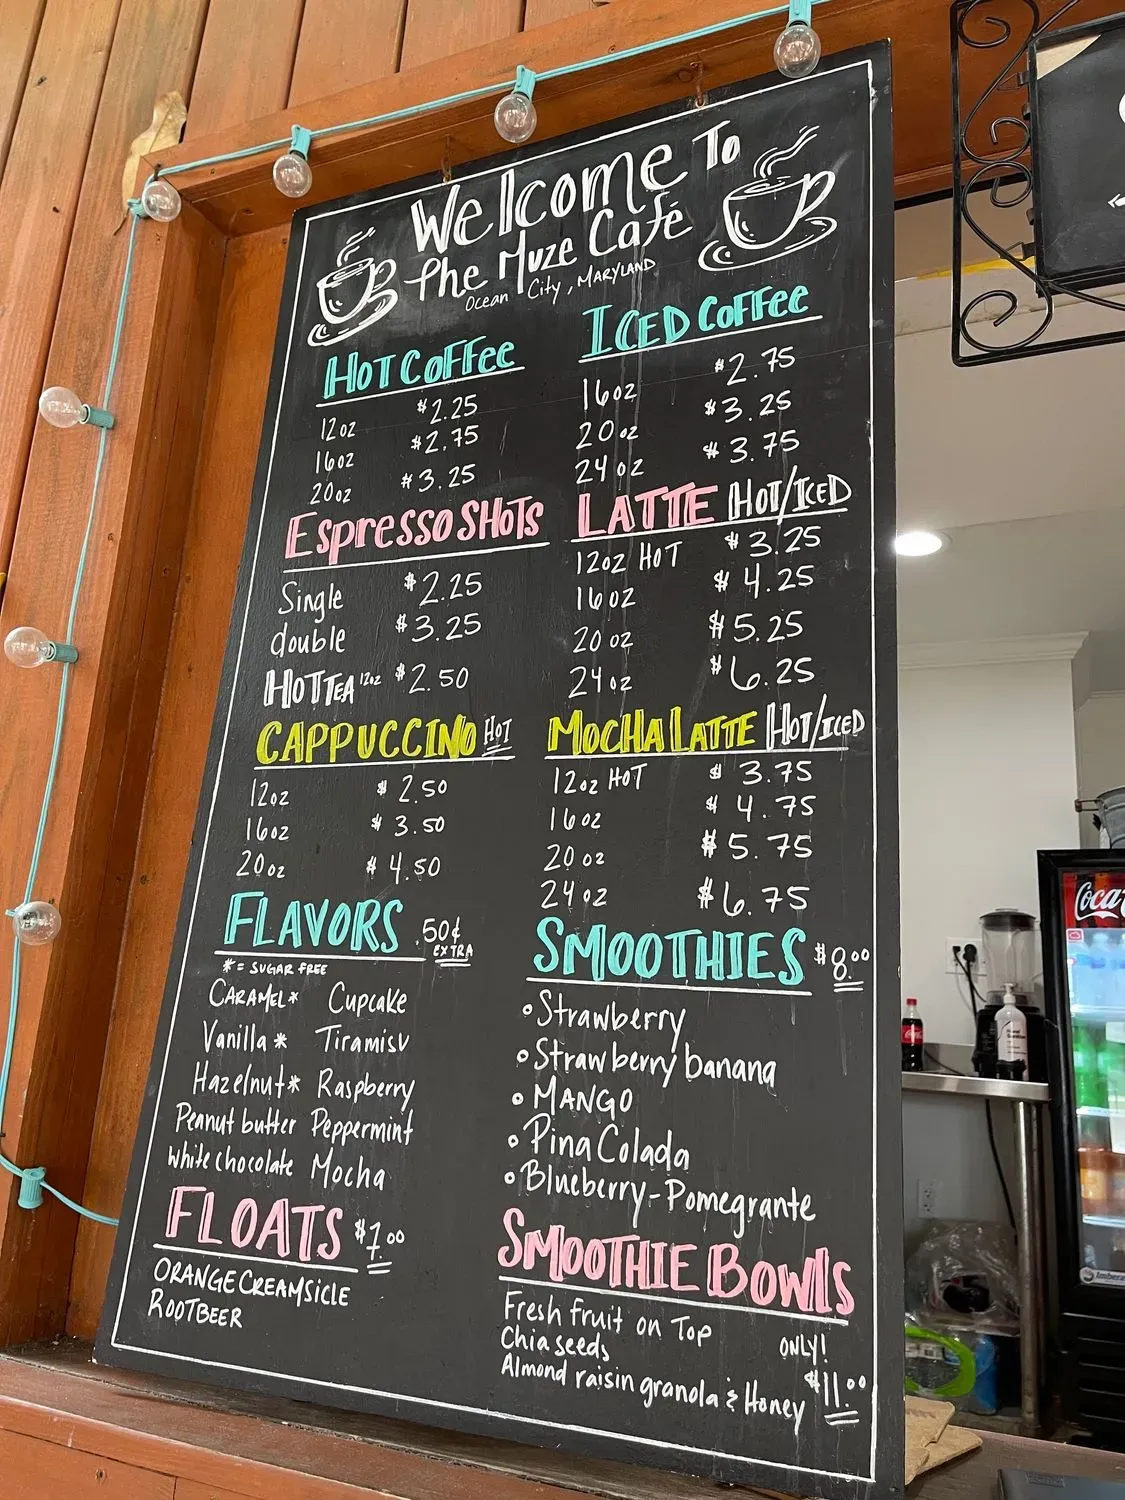 Welcome To
The Muze Café
Ocean City, MARYLAND
HOT COFFEE
12oz $2.25
16oz $2.75
20oz $3.25
ICED COFFEE
16oz $2.75
20oz $3.25
24oz $3.75
Espresso SHOTS
Single $2.25
double $3.25
HOT TEA 12oz $2.50
LATTE HOT/ICED
12oz HOT $3.25
16oz $4.25
20oz $5.25
24oz $6.25
CAPPUCCINO HOT
12oz $2.50
16oz $3.50
20oz $4.50
MOCHA LATTE HOT/ICED
12oz HOT $3.75
16oz $4.75
20oz $5.75
24oz $6.75
FLAVORS .50¢ EXTRA
*= SUGAR FREE
CARAMEL* Cupcake
Vanilla* Tiramisu
Hazelnut* Raspberry
Peanut butter Peppermint
white chocolate Mocha
SMOOTHIES $8.00
• Strawberry
• Strawberry banana
• MANGO
• Pina Colada
• Blueberry-Pomegrante
FLOATS $7.00
ORANGE CREAMSICLE
ROOTBEER
SMOOTHIE BOWLS
Fresh fruit on Top
Chia seeds
Almond raisin granola & Honey
ONLY!
$11.00
Coca